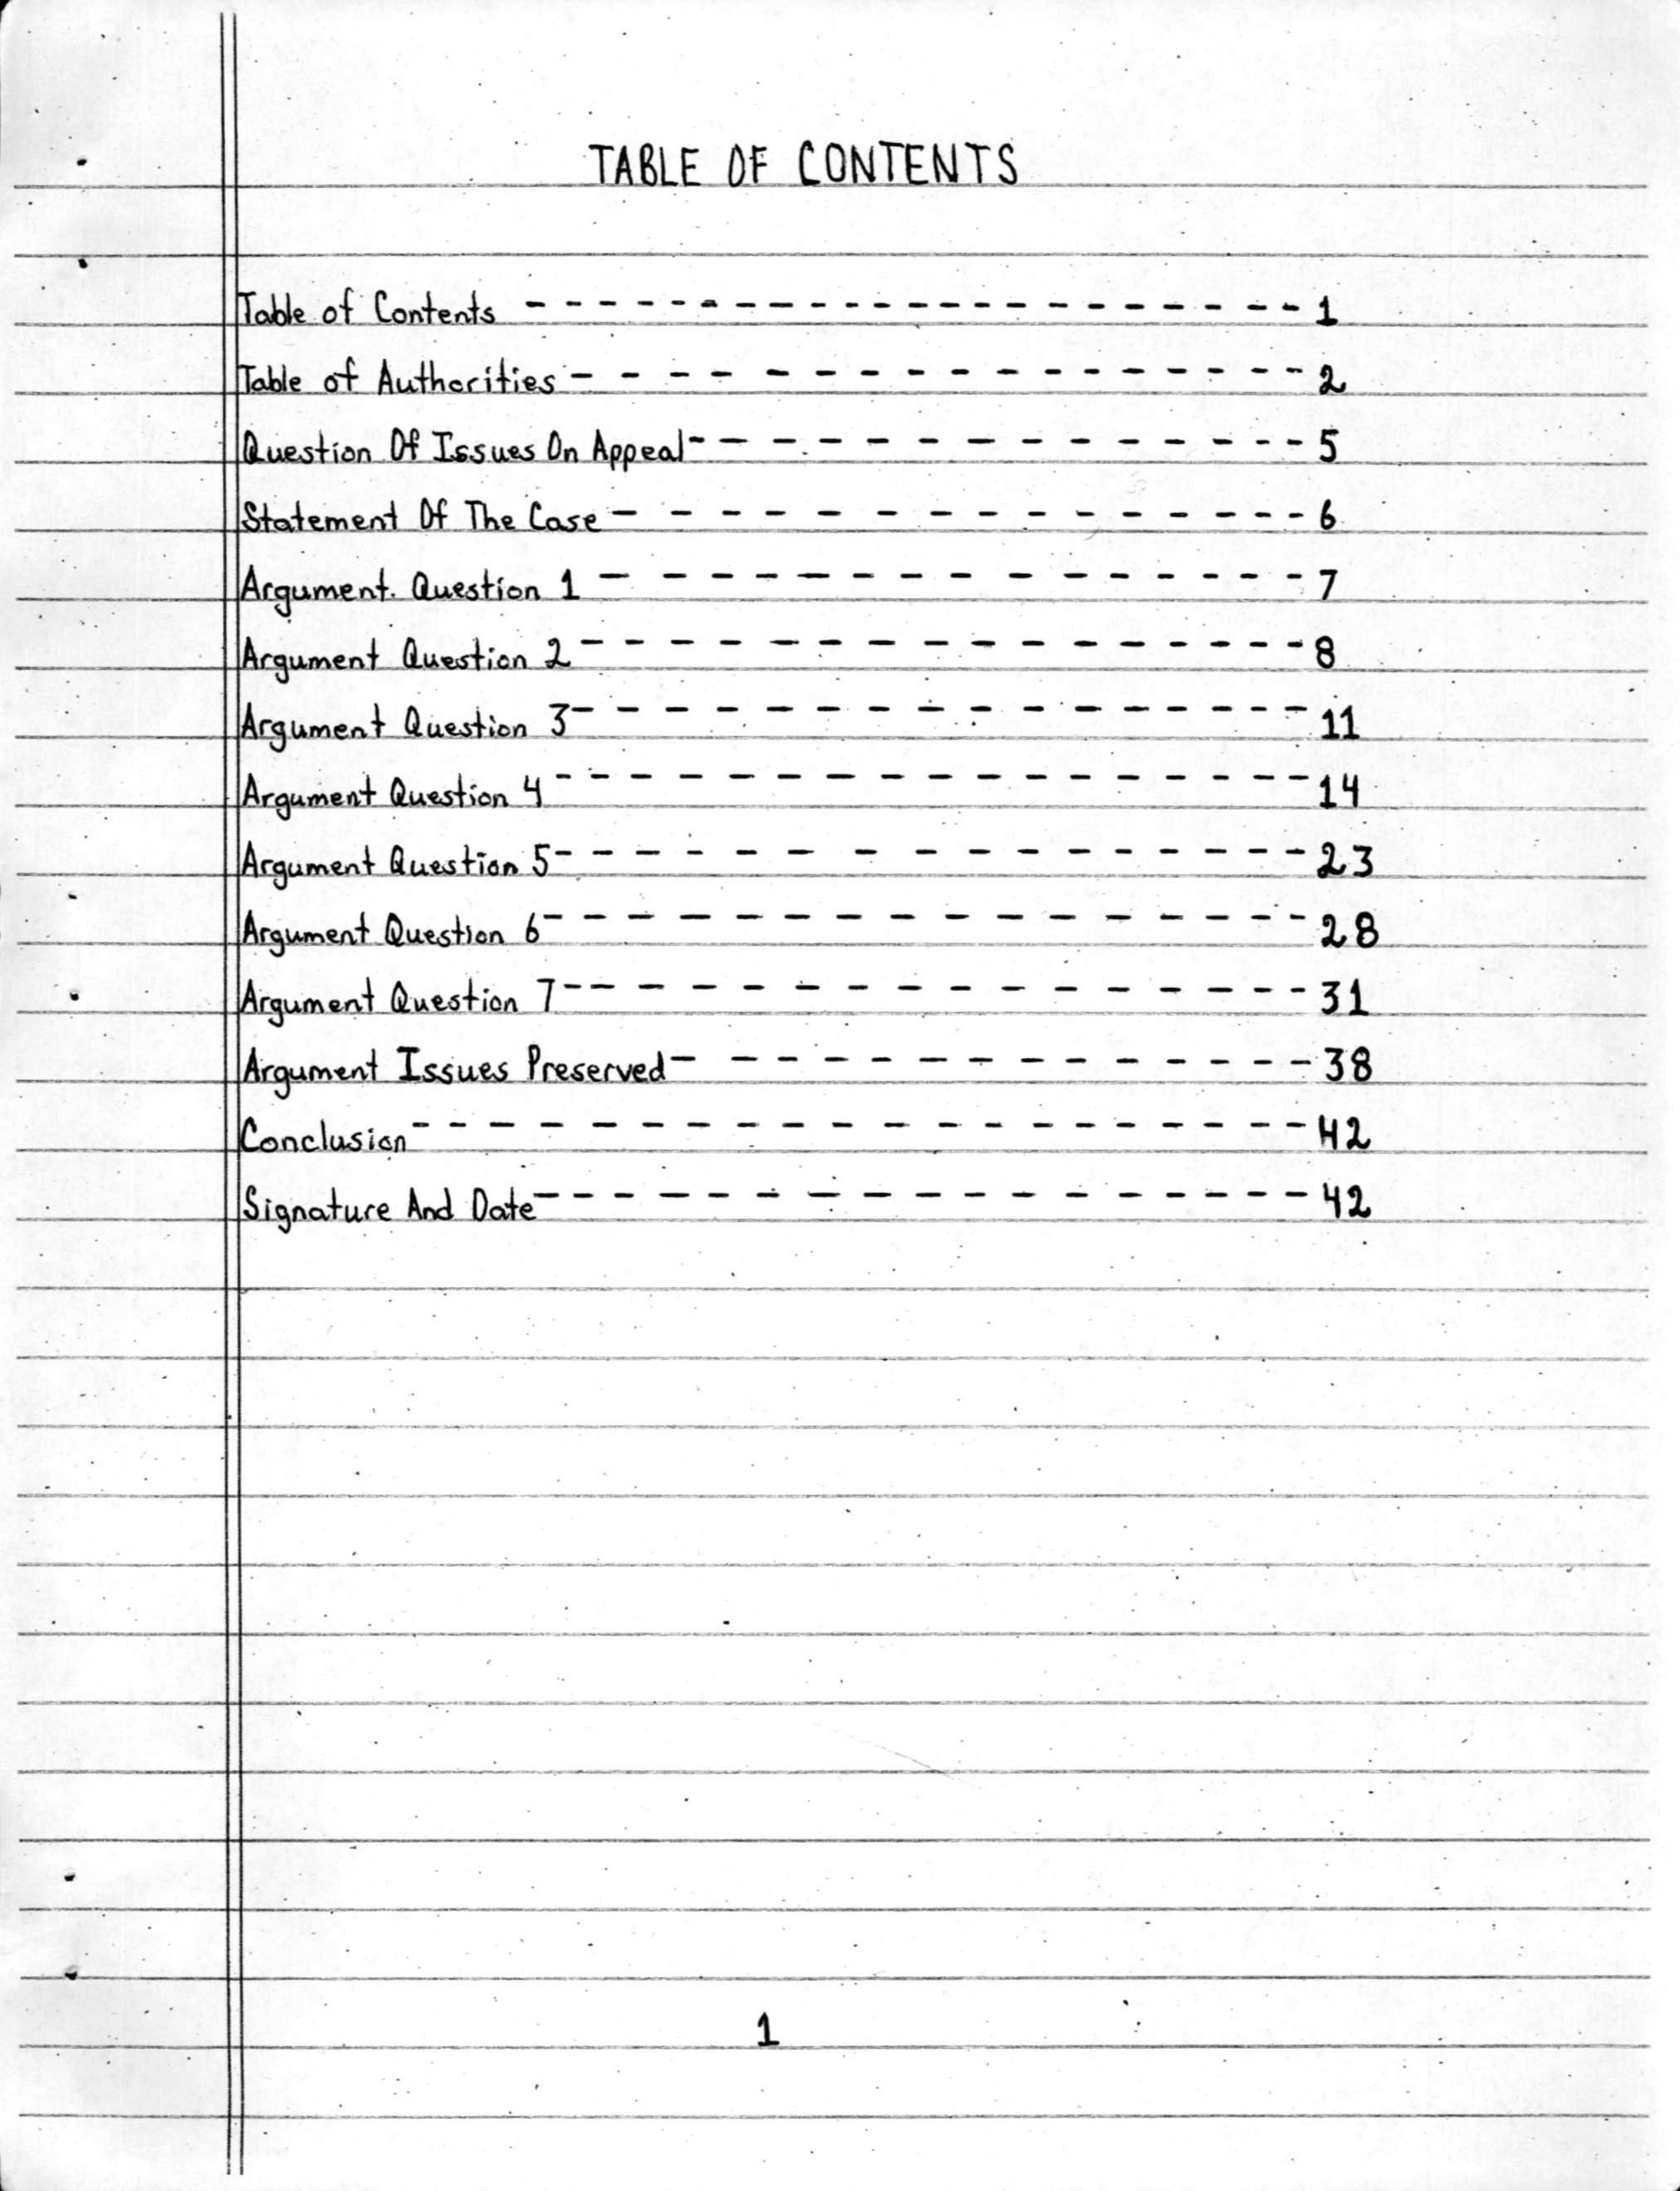 TABLE OF CONTENTS
Table of Contents - - - - - - - - - - - - - - - - - - - - - - 1
Table of Authorities - - - - - - - - - - - - - - - - - - 2
Question Of Issues On Appeal - - - - - - - - - - - - - - 5
Statement Of The Case - - - - - - - - - - - - - - - - 6
Argument. Question 1 - - - - - - - - - - - - - - - - 7
Argument Question 2 - - - - - - - - - - - - - - - - - 8
Argument Question 3 - - - - - - - - - - - - - - - - - 11
Argument Question 4 - - - - - - - - - - - - - - - - - - 14
Argument Question 5 - - - - - - - - - - - - - - - - - 23
Argument Question 6 - - - - - - - - - - - - - - - - - - 28
Argument Question 7 - - - - - - - - - - - - - - - - - 31
Argument Issues Preserved - - - - - - - - - - - - - - - 38
Conclusion - - - - - - - - - - - - - - - - - - - - - 42
Signature And Date - - - - - - - - - - - - - - - - - - 42
1